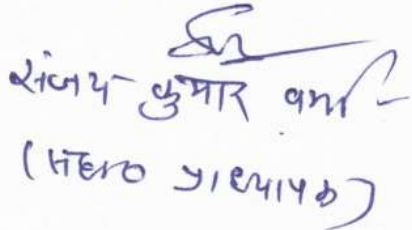 संजय कुमार वर्मा
(सहा० प्राध्यापक)